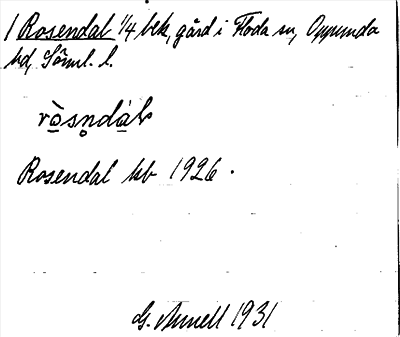 1 Rosendal 1/4 bek, gård i Floda sn, Oppunda
hd, Söml. l.
ròsṇdàl
Rosendal kb 1926.
G. Annell 1931